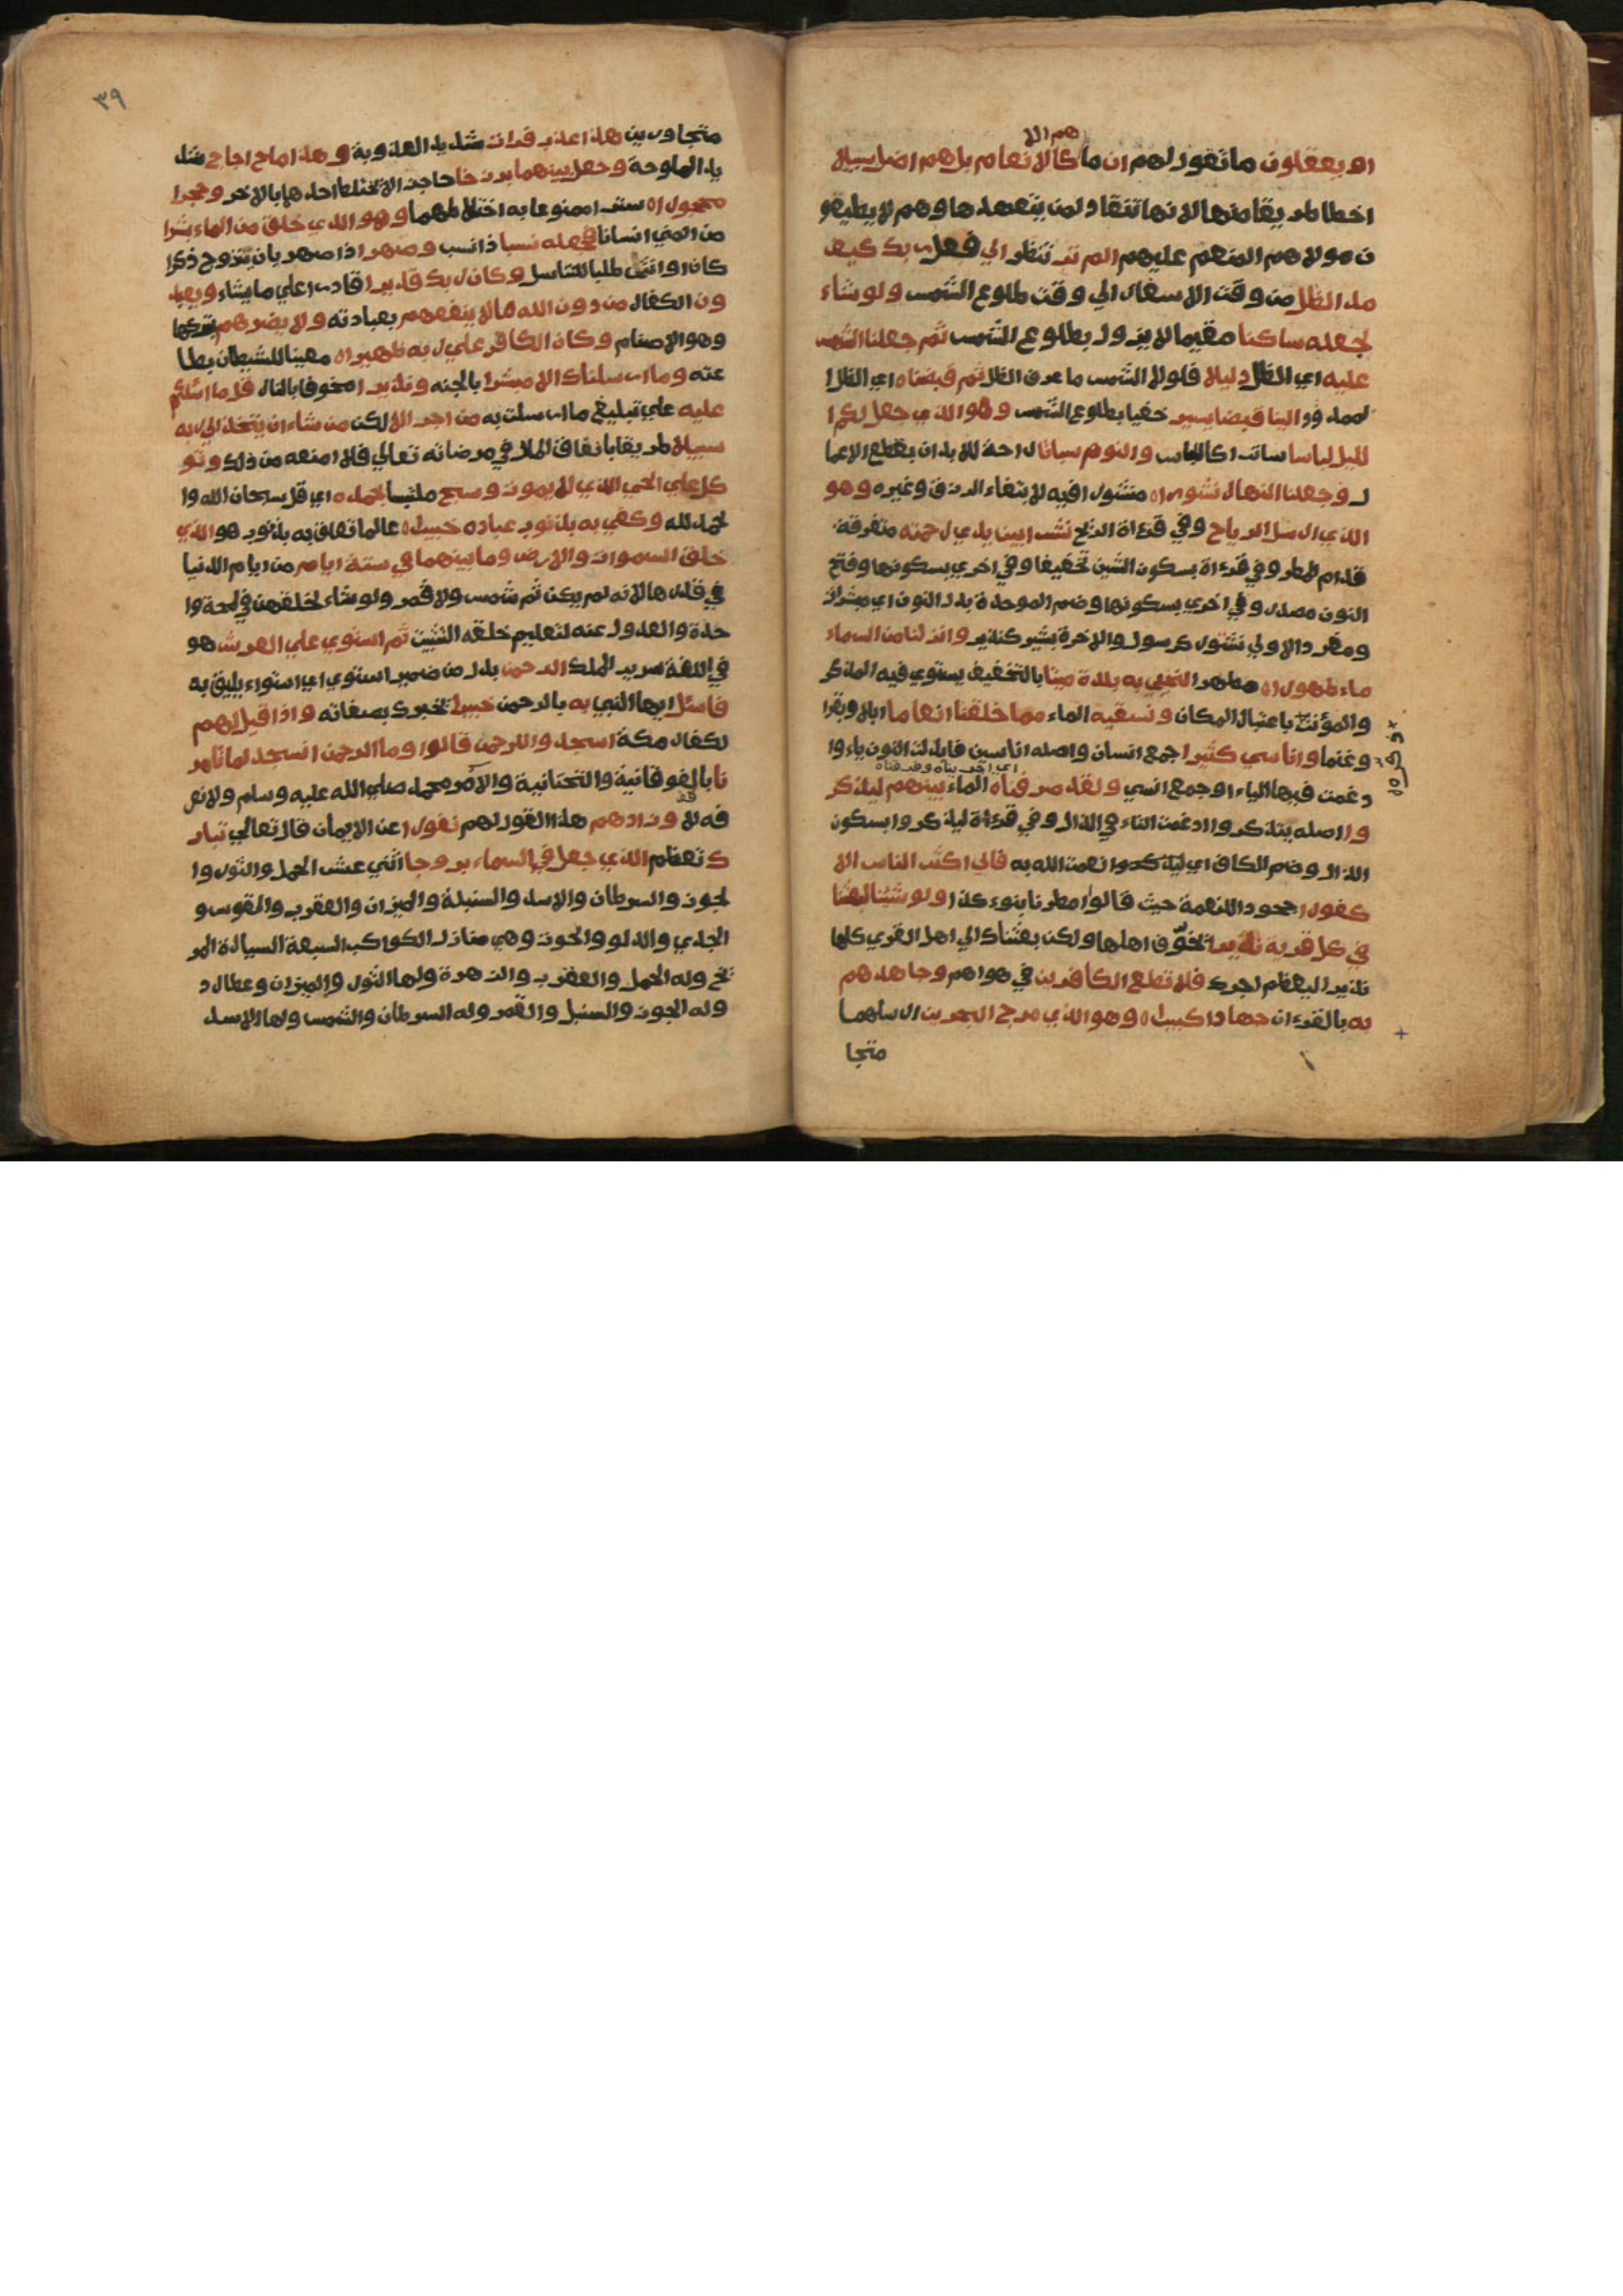 هم الا
او يعقلون ما تقول لهم ان ما كالانعام بل هم اضل سبيلا
اخطا طريقا منها لانها تنقاد لمن يتعهدها وهم لا يطيعو
ن مولاهم المنعم عليهم الم تر تنظر الي فعل ربك كيف
مد الظل من وقت الاسفار الي وقت طلوع الشمس ولو شاء
لجعله ساكنا مقيما لا يزول بطلوع الشمس ثم جعلنا الشمس
عليه اي الظل دليلا فلولا الشمس ما عرف الظل ثم قبضناه اي الظل ا
لممدود الينا قبضا يسير خفيا بطلوع الشمس وهو الذي جعل لكم ا
لليل لباسا ساترا كاللباس والنوم سباتا راحة للابدان بقطع الاعما
ل وجعلنا النهار نشورا ه منشورا فيه لابتغاء الرزق وغيره وهو
الذي ارسل الرياح وفي قراءة الريح نشرا بين يدي رحمته متفرقة
قدام المطر وفي قراءة بسكون الشين تخفيفا وفي اخري بسكونها وفتح
النون مصدر وفي اخري بسكونها وضم الموحدة بدل النون اي مبشرات
ومفرد الاولي نشور كرسول والاخرة بشير كنذير وانزلنا من السماء
ماء طهورا ه مطهرا لنحيي به بلدة ميتا بالتخفيف يستوي فيه المذكر
والمؤنث باعتبار المكان ونسقيه الماء مما خلقنا انعاما ابلا وبقرا
وغنما واناسي كثيرا جمع انسان واصله اناسين فابدلت النون ياء وا
دغمت فيها الياء او جمع انسي ولقد صرفناه الماء بينهم ليذكر
وا اصله يتذكروا ادغمت التاء في الذال وفي قراءة ليذكروا بسكون
الذال وضم الكاف اي ليذكروا نعمت الله به فابي اكثر الناس الا
كفورا جحودا للنعمة حيث قالوا مطرنا بنوء كذا ولو شئنا لبعثنا
في كل قرية نذيرا تخوف اهلها ولكن بعثناك الي اهل القري كلها
نذيرا ليعظم اجرك فلا تطع الكافرين في هواهم وجاهدهم
به بالقرءان جهادا كبيرا ه وهو الذي مرج البحرين ارسلهما
متجا
٣٩
متجاورين هذا عذب فرات شديد العذوبة وهذا ملح اجاج شد
يد الملوحة وجعل بينهما برزخا حاجزا لا تختلط احدهما بالاخر وحجرا
محجورا ه سترا ممنوعا به اختلاطهما وهو الذي خلق من الماء بشرا
من المني انسانا فجعله نسبا ذا نسب وصهرا ذا صهر بان يتزوج ذكرا
كان او انثي طلبا للتناسل وكان ربك قديرا قادرا علي ما يشاء ويعبد
ون الكفار من دون الله ما لا ينفعهم بعبادته ولا يضرهم بتركها
وهو الاصنام وكان الكافر علي ربه ظهيرا ه معينا للشيطان بطا
عته وما ارسلناك الا مبشرا بالجنه ونذيرا مخوفا بالنار قل ما اسئلكم
عليه علي تبليغ ما ارسلت به من اجر الا لكن من شاء ان يتخذ الي ربه
سبيلا طريقا بانفاق المال في مرضاته تعالي فلا امنعه من ذلك وتو
كل علي الحي الذي لا يموت وسبح ملتبسا بحمده اي قل سبحان الله وا
لحمد لله وكفي به بذنوب عباده خبيرا ه عالما تعلق به بذنوب هو الذي
خلق السموات والارض وما بينهما في ستة ايام من ايام الدنيا
في قدرها لانه لم يكن ثم شمس ولا قمر ولو شاء لخلقهن في لمحة وا
حدة والعدول عنه لتعليم خلقه التثبت ثم استوي علي العرش هو
في اللغة سرير الملك الرحمن بدل من ضمير استوي اي استواء يليق به
فاسئل ايها النبي به بالرحمن خبيرا يخبرك بصفاته واذا قيل لهم
لكفار مكة اسجدوا للرحمن قالوا وما الرحمن انسجد لما تامر
نا بالفوقانية والتحتانية والامر محمد صلي الله عليه وسلم ولا نعر
فه لا وزادهم هذا القول لهم نفورا عن الايمان قال تعالي تبار
ك تعظم الذي جعل في السماء بروجا اثني عشر الحمل والثور وا
لجوزا والسرطان والاسد والسنبلة والميزان والعقرب والقوس و
الجدي والدلو والحوت وهي منازل الكواكب السبعة السيارة المر
يخ وله الحمل والعقرب والزهرة ولها الثور والميزان وعطارد
وله الجوزا والسنبل والقمر وله السرطان والشمس ولها الاسد